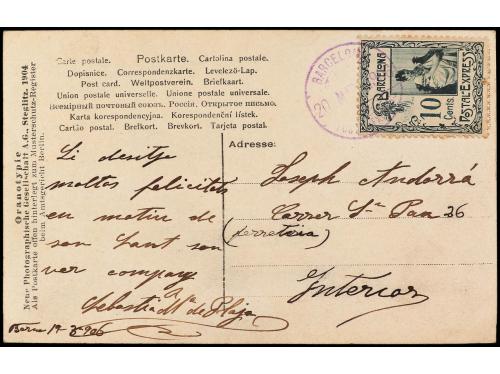 Carte postale. Postkarte. Cartolina postale.
Dopisnice. Correspondenzkarte. Levelező-Lap.
Post card. Weltpostverein. Briefkaart.
Union postale universelle. Unione postale universale.
Всемірный почтовый союзъ. Россія. Открытое письмо.
Karta korespondencyjna. Korespondenční lístek.
Cartão postal. Brefkort. Brevkort. Tarjeta postal.
Oranotypie
Neue Photographische Gesellschaft A.G., Steglitz. 1904
Als Postkarte offen hinterlegt zum Musterschutz-Register
beim Amtsgericht Berlin.
BARCELONA
20
BARCELONA
POSTAL-EXPRESS
10
Cents.
Adresse:
Li desitja
moltas felicitats
en motiu de
son Sant son
ver company
Sebastiá Mª de Plaja
Barna 19-3-906
Joseph Andorrá
Carrer St Pau 36
(ferreteria)
Interior